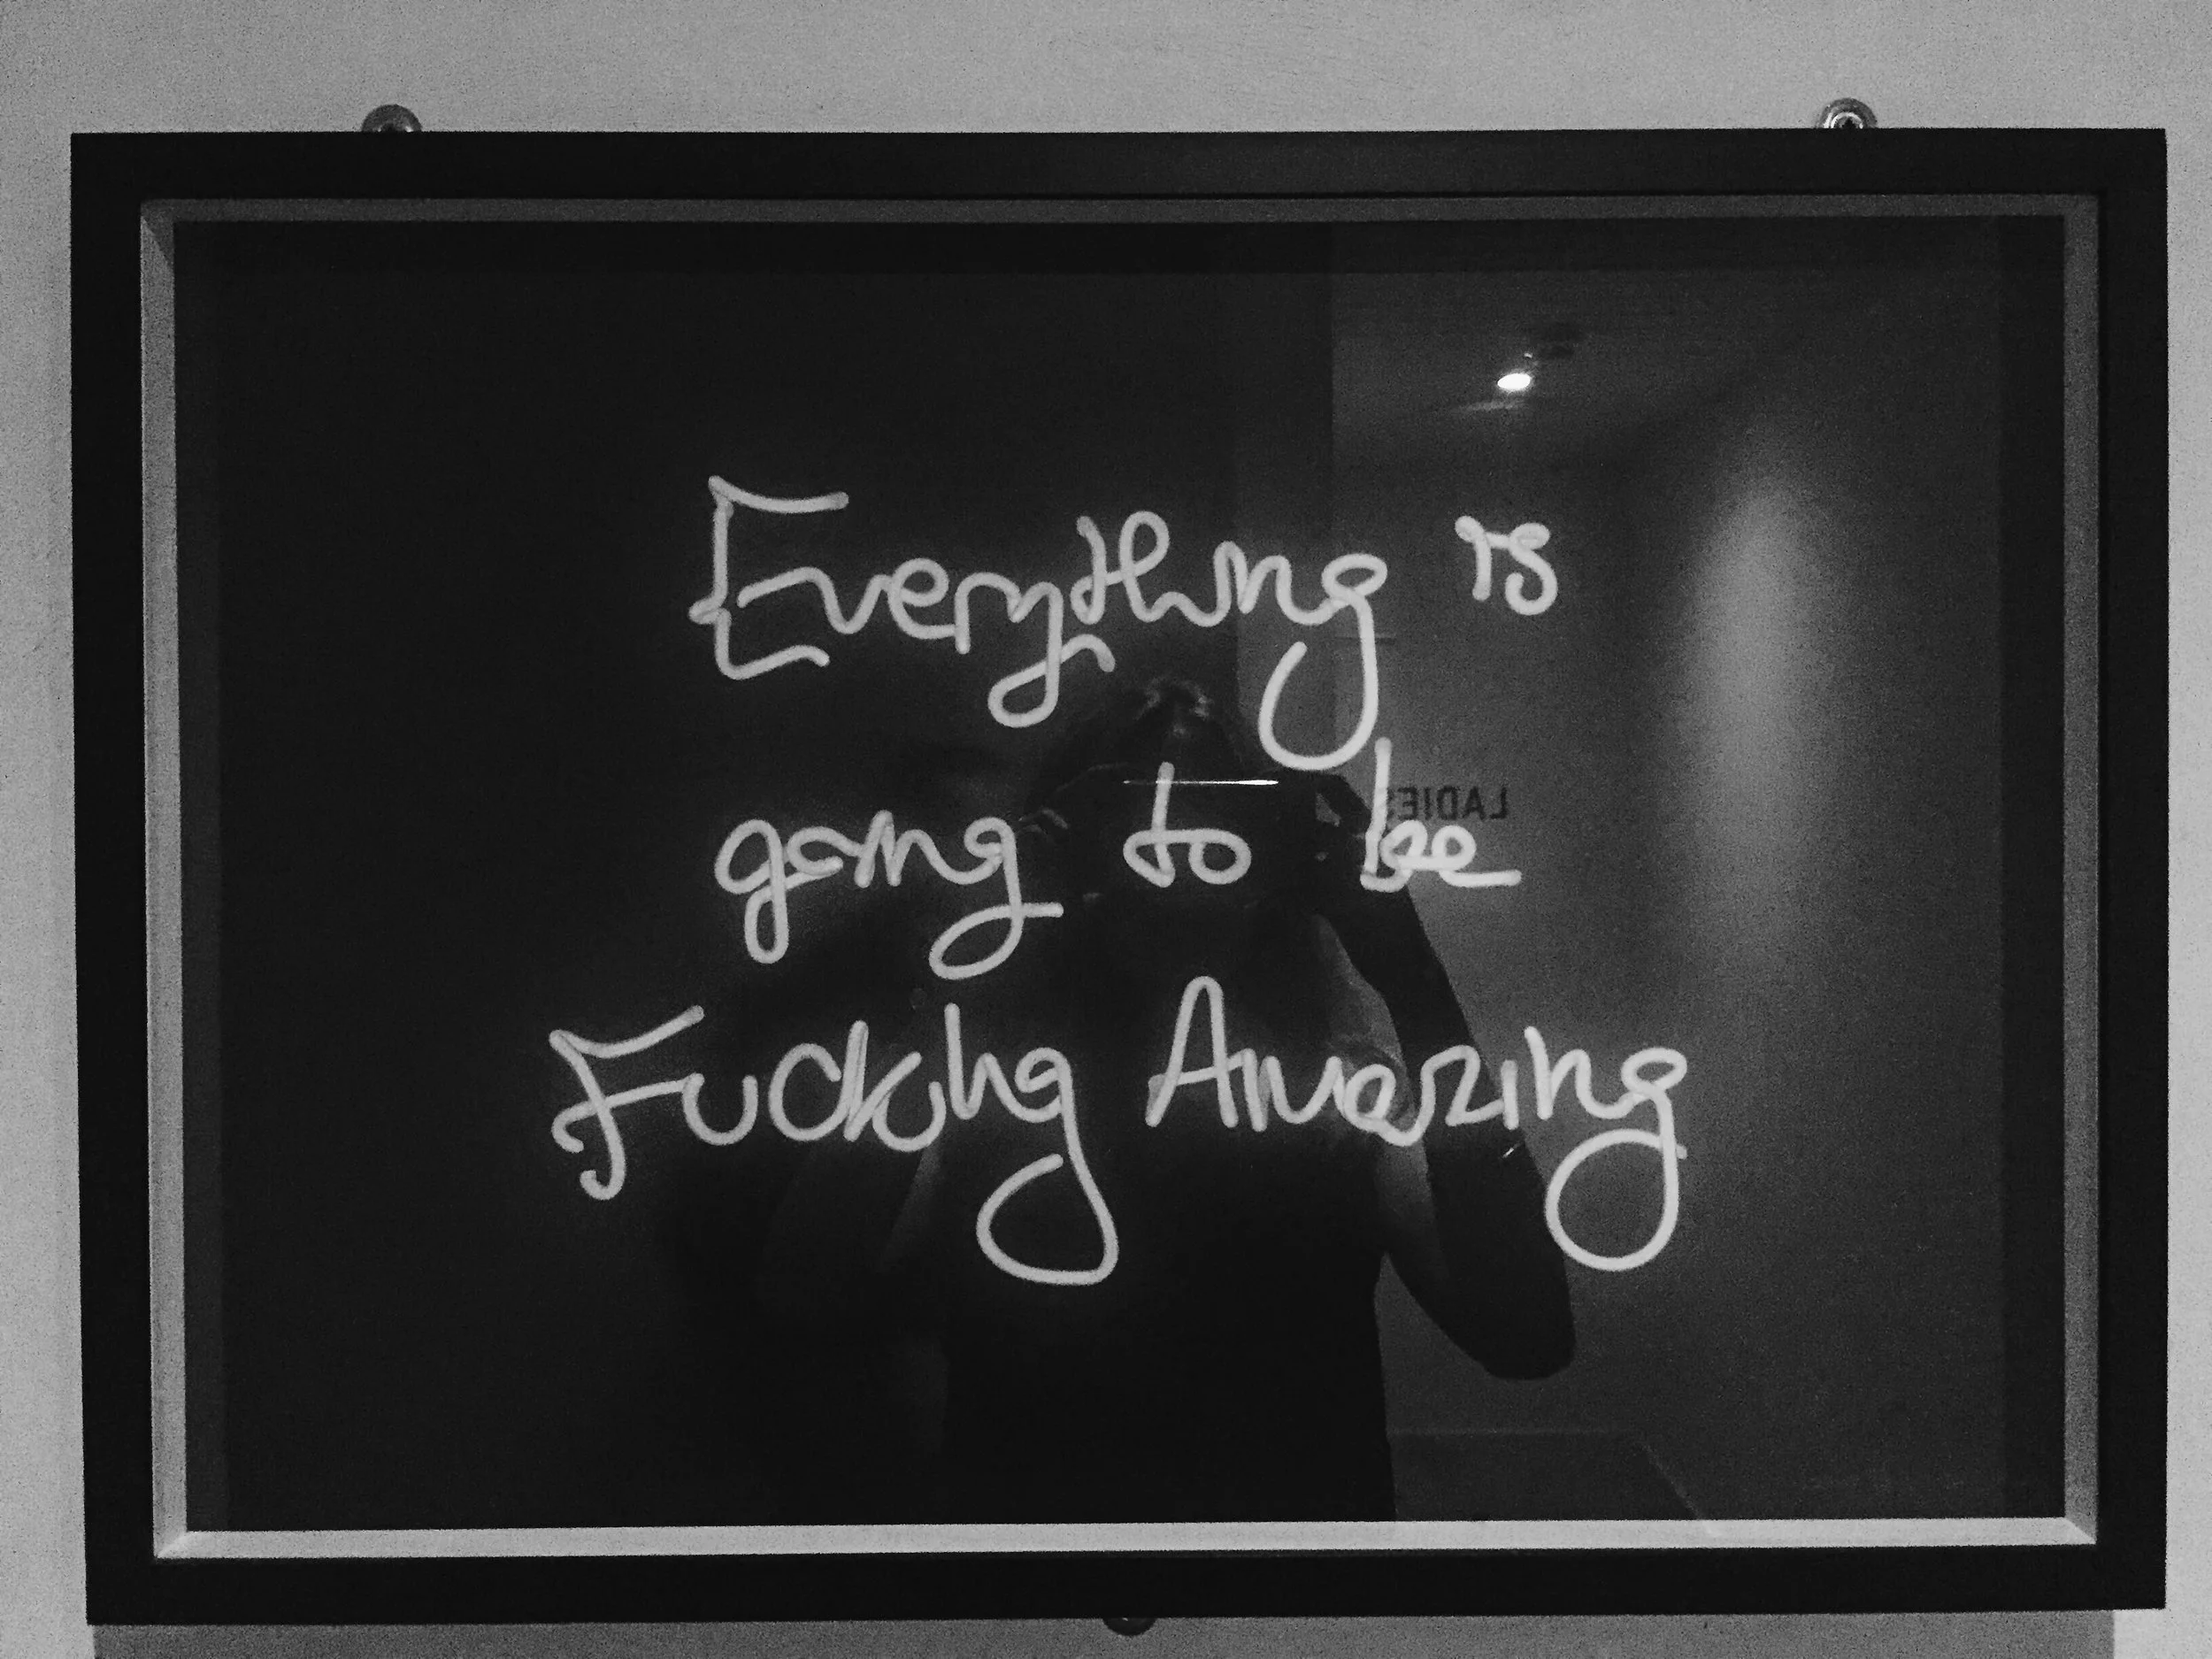 Everything is
LADIES
going to be
Fucking Amazing